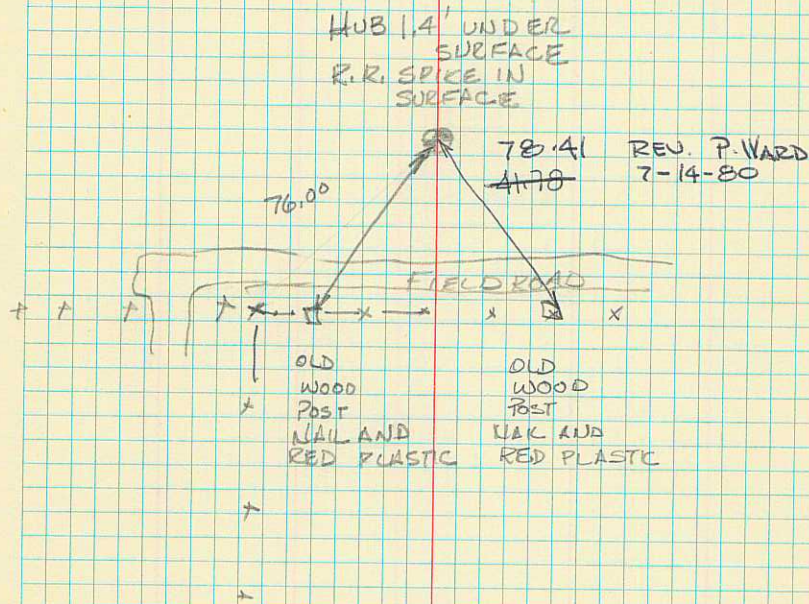 HUB 1.4' UNDER
SURFACE
R.R. SPIKE IN
SURFACE
78.41 REV. P. WARD
41.78 7-14-80
76.00
FIELD ROAD
OLD
WOOD
POST
NAIL AND
RED PLASTIC
OLD
WOOD
POST
NAIL AND
RED PLASTIC